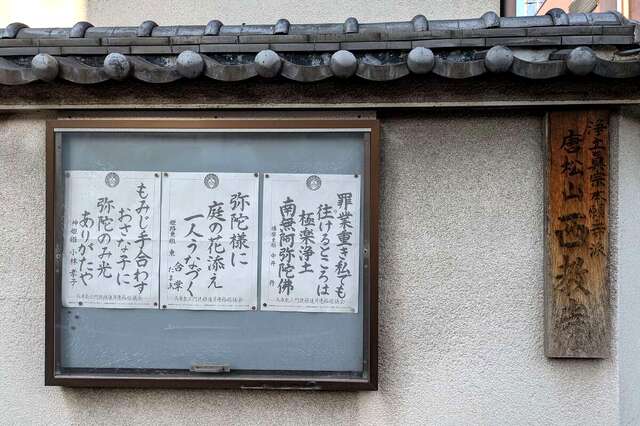 浄土真宗本願寺派
唐松山 西教寺
罪業重き私でも
往けるところは
極楽浄土
南無阿弥陀佛
弥陀様に
庭の花添え
一人うなづく
もみじ手合わす
おさな子に
弥陀のみ光
ありがたや
神姫組 小林孝子